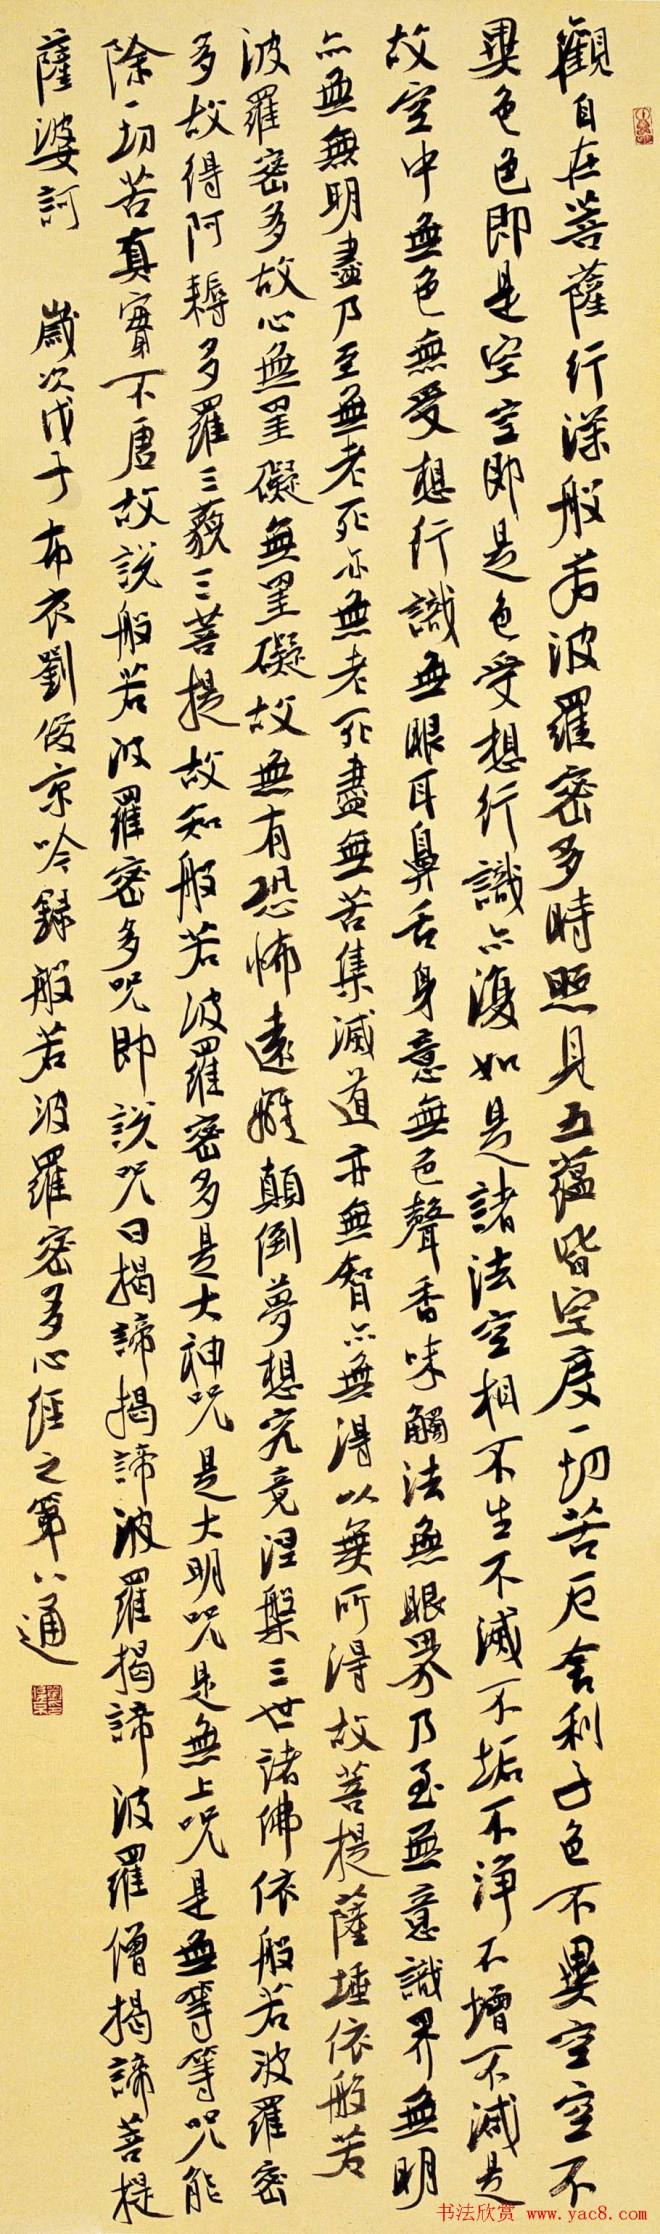 觀自在菩薩行深般若波羅密多時照見五蘊皆空度一切苦厄舍利子色不異空空不
異色色即是空空即是色受想行識亦復如是諸法空相不生不滅不垢不淨不增不減是
故空中無色無受想行識無眼耳鼻舌身意無色聲香味觸法無眼界乃至無意識界無明
亦無無明盡乃至無老死亦無老死盡無苦集滅道亦無智亦無得以無所得故菩提薩埵依般若
波羅密多故心無罣礙無罣礙故無有恐怖遠離顛倒夢想究竟涅槃三世諸佛依般若波羅密
多故得阿耨多羅三藐三菩提故知般若波羅密多是大神咒是大明咒是無上咒是無等等咒能
除一切苦真實不虛故說般若波羅密多咒即說咒曰揭諦揭諦波羅揭諦波羅僧揭諦菩提
薩婆訶 歲次戊子布衣劉俊京吟錄般若波羅密多心經之第八通
书法欣赏
http://www.yac8.com